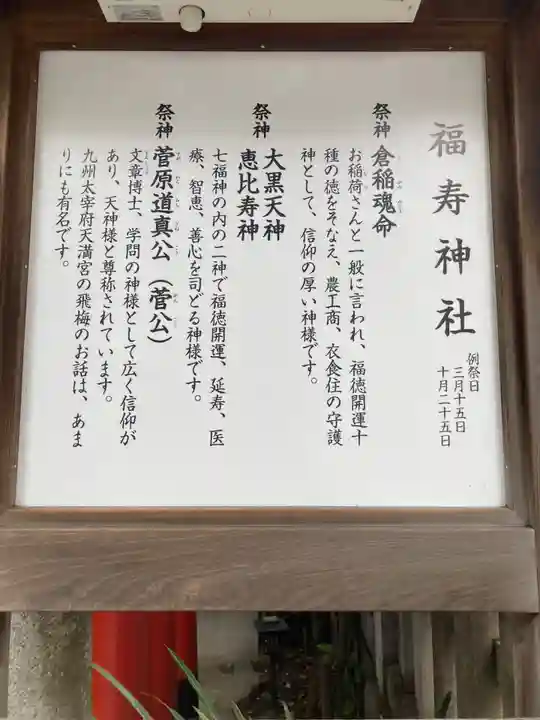 福寿神社
例祭日
三月十五日
十月二十五日
祭神 倉稲魂命
お稲荷さんと一般に言われ、福徳開運十
種の徳をそなえ、農工商、衣食住の守護
神として、信仰の厚い神様です。
祭神 大黒天神
恵比寿神
七福神の内の二神で福徳開運、延寿、医
療、智恵、善心を司どる神様です。
祭神 菅原道真公(菅公)
文章博士、学問の神様として広く信仰が
あり、天神様と尊称されています。
九州太宰府天満宮の飛梅のお話は、あま
りにも有名です。